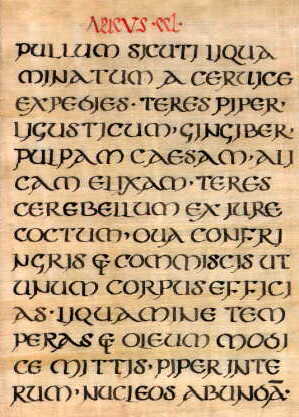 PULLUM SICUTI LIQUA
MINATUM A CERUICE
EXPEDIES · TERES PIPER ·
LIGUSTICUM, GINGIBER,
PULPAM CAESAM, ALI
CAM ELIXAM · TERES
CEREBELLUM EX IURE
COCTUM, OUA CONFRI
NGRIS & COMMISCIS UT
UNUM CORPUS EFFICI
AS · LIQUAMINE TEM
PERAS & OLEUM MODI
CE MITTIS, PIPER INTE
RUM, NUCLEOS ABUNDA̅·